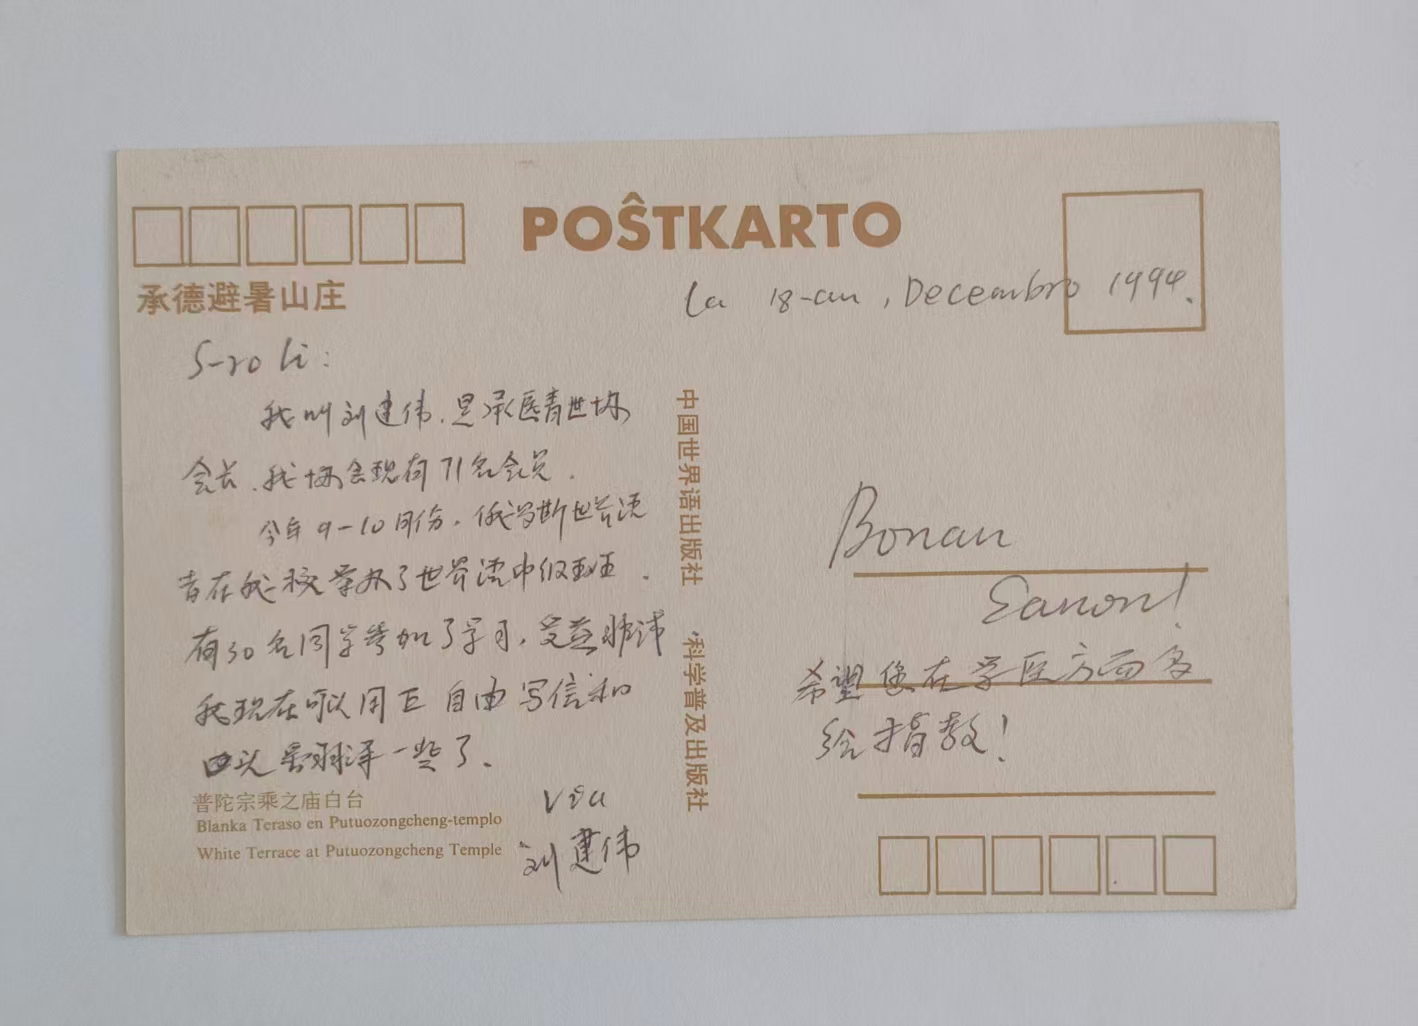 POŜTKARTO
承德避暑山庄
la 18-an, Decembro 1994.
S-ro li:
我叫刘建伟.是承医青世协
会长.我协会现有71名会员.
今年9-10月份.俄罗斯世界语
者在我校举办了世界语中级班.
有30名同学参加了学习.受益匪浅
我现在可以用E自由写信和
口头翻译一些了.
Viu
刘建伟
普陀宗乘之庙白台
Blanka Teraso en Putuozongcheng-templo
White Terrace at Putuozongcheng Temple
中国世界语出版社
·科学普及出版社
Bonan
希望您在学医方面多
给指教!